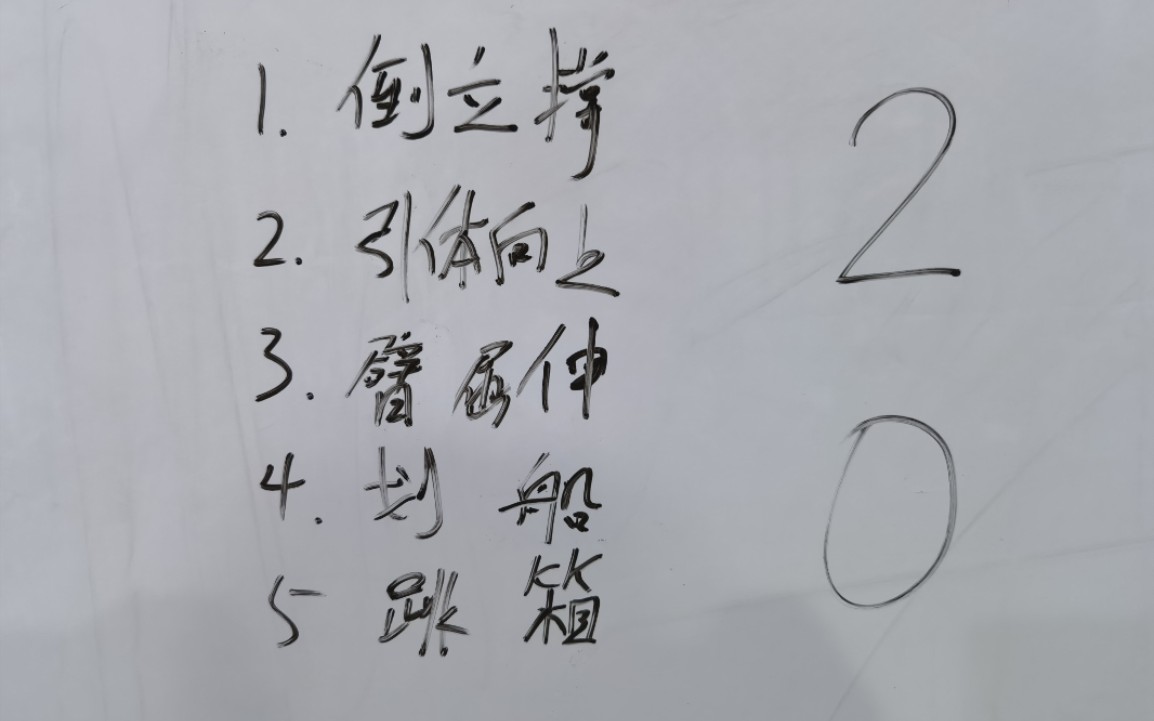 1. 倒立撑
2. 引体向上
3. 臂屈伸
4. 划船
5 跳箱
2
0